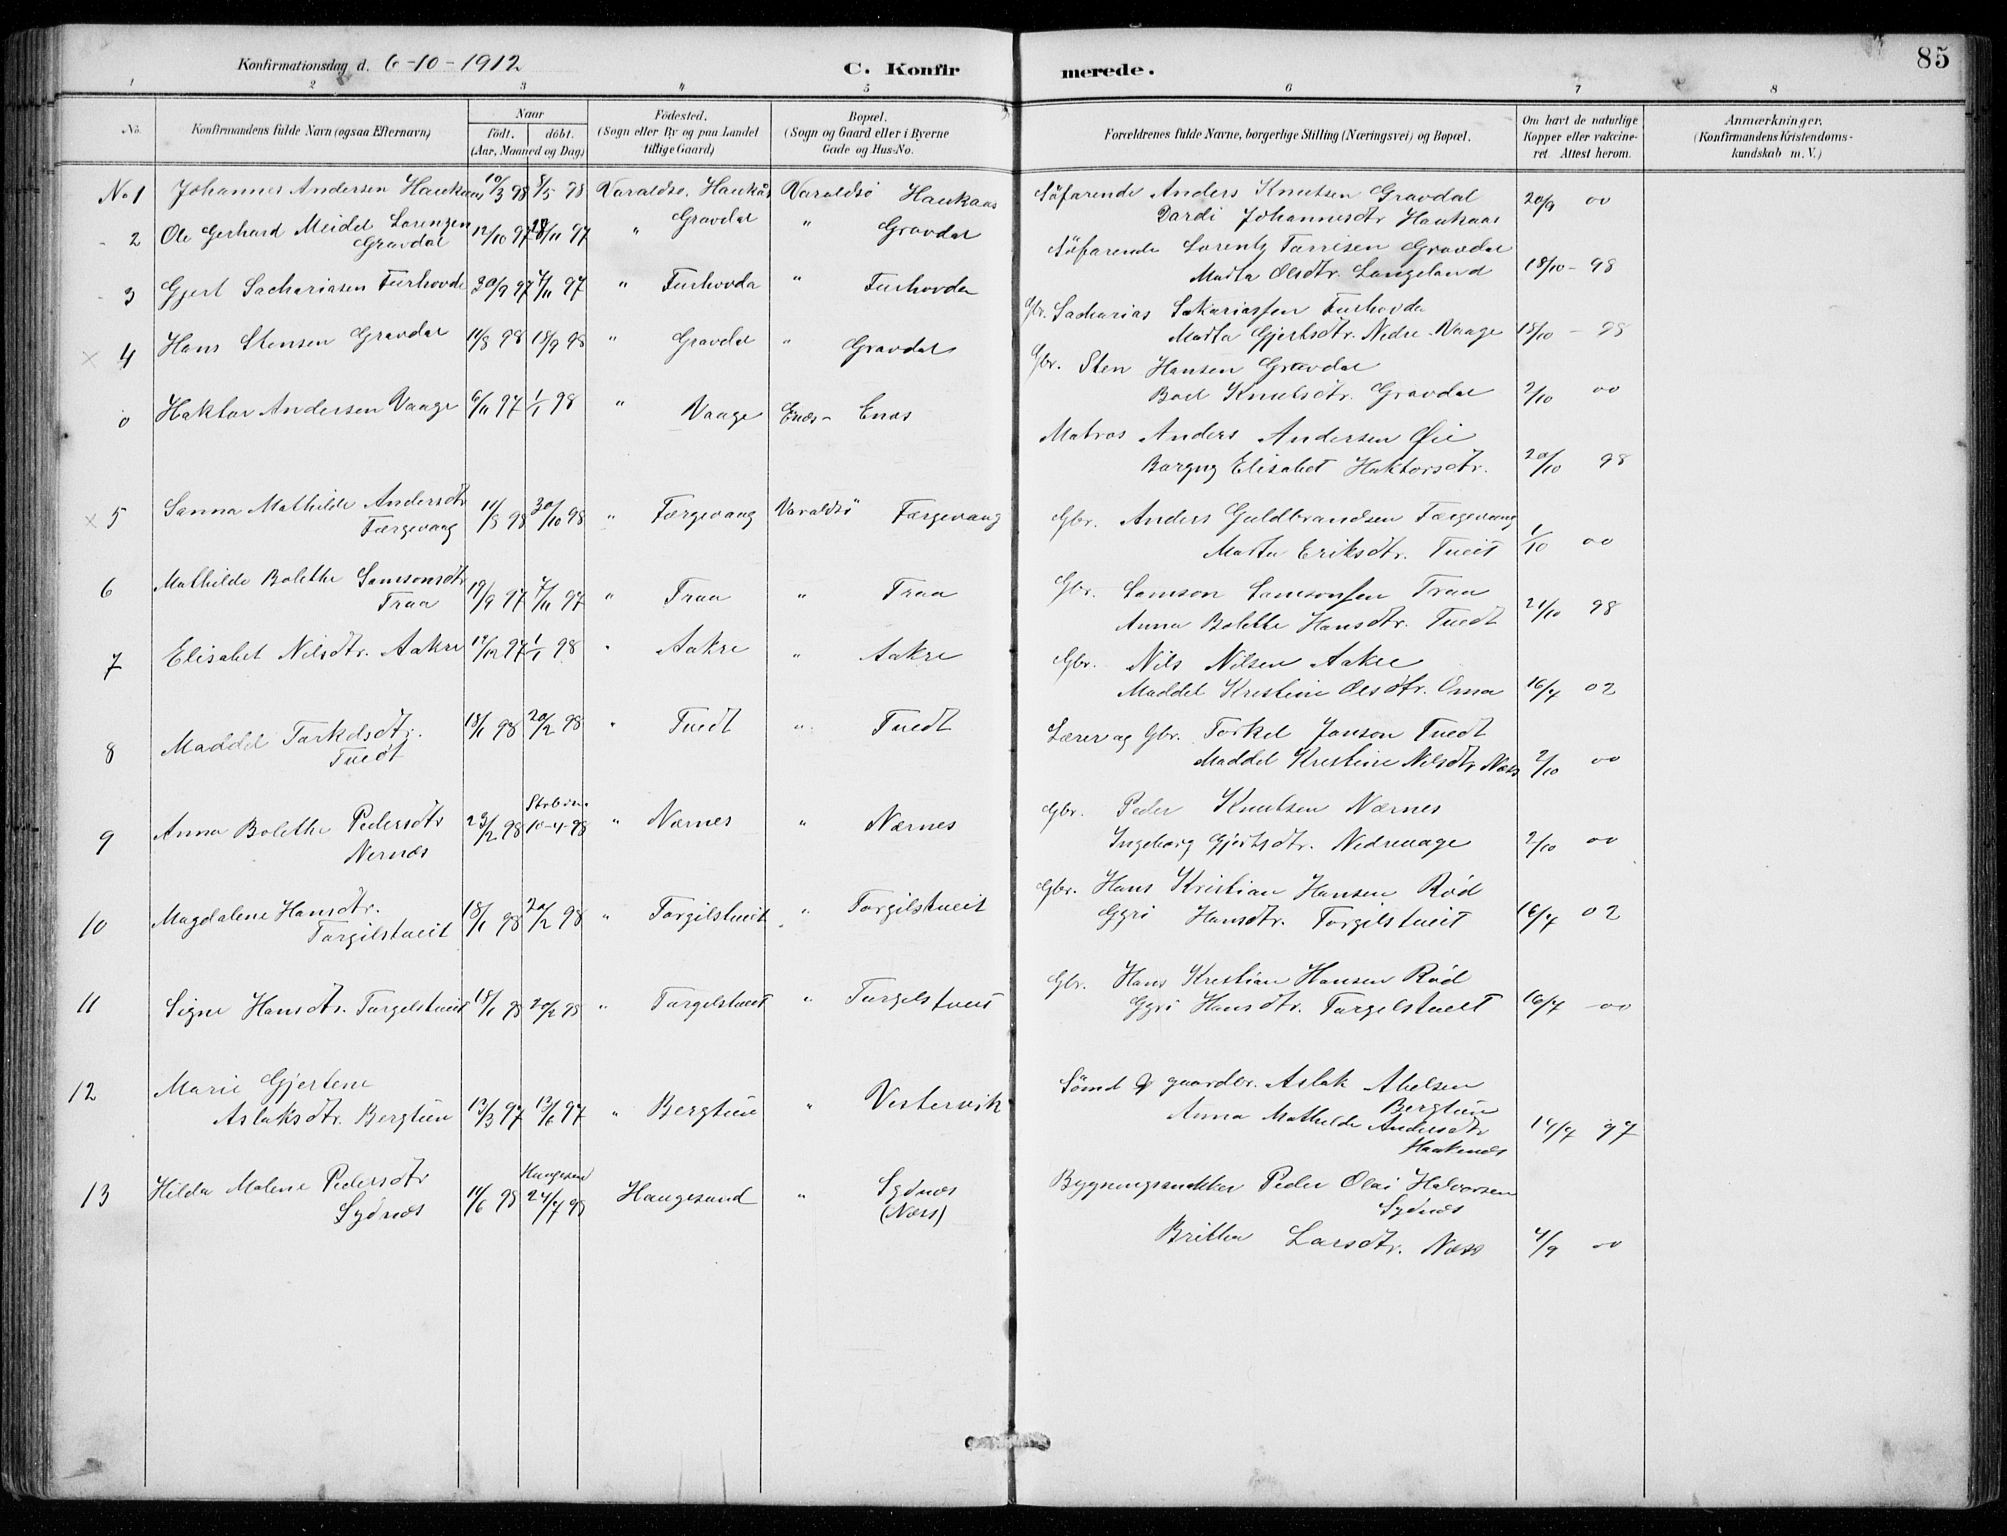 85
Konfirmationsdag d. 6-10-1912 C. Konfirmerede.
1 2 3 4 5 6 7 8
No. Konfirmandens fulde Navn (ogsaa Efternavn) Naar födt. döbt. (Aar, Maaned og Dag) Födested. (Sogn eller By og paa Landet tillige Gaard) Bopæl. (Sogn og Gaard eller i Byerne Gade og Hus-No. Forældrenes fulde Navne, borgerlige Stilling (Næringsvei) og Bopæl. Om havt de naturlige Kopper eller vakcineret. Attest herom. Anmærkninger. (Konfirmandens Kristendomskundskab m. V.)
No 1 Johannes Andersen Haukaas 10/3 98 8/5 98 Varaldsö. Haukås Varaldsö Haukaas Söfarende Anders Knutsen Gravdal 20/9 00
Johannesdtr Haukaas
2 Ole Gerhard Meidel Lorenzen 12/10 97 28/11 97 " Gravdal " Gravdal Söfarende Lorentz Tarrisen Gravdal
Gravdal Marta Olsdtr. Langeland 18/10 - 98
3 Gjert Sachariasen Furhovde 30/9 97 7/11 97 " Furhovda " Furhovda Gbr. Sacharias Sakariassen Furhovda
Marta Gjertsdtr. Nedre-Vaage 18/10 - 98
× 4 Hans Stensen Gravdal 11/8 98 18/9 98 " Gravdal " Gravdal Gbr. Sten Hansen Gravdal
Boel Knutsdtr. Gravdal 2/10 00
0 Haktor Andersen Vaage 6/11 97 1/1 98 " Vaage Enæs- Enæs Matros Anders Andersen Øie
Borgny Elisabet Haktorsdtr. 20/10 98
× 5 Sanna Mathilde Andersdtr 11/8 98 30/10 98 " Færgevaag Varaldsö Færgevaag Gbr. Anders Guldbrandsen Færgevaag
Færgevaag Marta Eriksdtr. Tueit 1/10 00
6 Mathilde Bolethe Samsonsdtr 19/9 97 7/11 97 " Traa " Traa Gbr. Samson Samsonsen Traa
Traa Anna Bolette Hansdtr. Tuedt 21/10 98
7 Elisabet Nilsdtr. Aakre 14/12 97 1/1 98 " Aakre " Aakre Gbr. Nils Nilsen Aakre
Maddel Kristine Olsdtr. Oma 16/7 02
8 Maddel Tarkelsdtr. 18/1 98 20/2 98 " Tuedt " Tuedt Lærer og Gbr. Torkel Janson Tuedt
Tuedt Maddel Kristine Nilsdtr Næss 2/10 00
9 Anna Bolethe Pedersdtr 23/2 98 10-4-98 " Nærnes " Nærnes Gbr. Peder Knutsen Nærnes
Nernæs Ingeborg Gjertsdtr. Nedrevaage 2/10 00
10 Magdalene Hansdtr. 18/1 98 20/2 98 " Torgilstueit " Torgilstueit Gbr. Hans Kristian Hansen Rød
Targilstueit Gyri Hansdtr. Torgilstueit 16/7 02
11 Signe Hansdtr. Targelstueit 18/1 98 20/2 98 " Targelstueit " Targelstueit Gbr. Hans Kristian Hansen Rød
Gyri Hansdtr. Targelstueit 16/7 -00
12 Marie Gjertine Sömd & gaardbr. Aslak Abelsen
Aslaksdtr. Bergtun 13/3 97 13/6 97 " Bergtun " Vestervik Bergtun
Anna Mathilde Andersdtr 14/7 97
Haukenæs
13 Hilda Malene Pedersdtr 11/6 98 Haugesund 24/7 98 Haugesund " Sydnæs Bygningssnekker Peder Olai Halvorsen
Sydnæs (Næss) Sydnæs
Britha Larsdtr. Næss 4/9 00